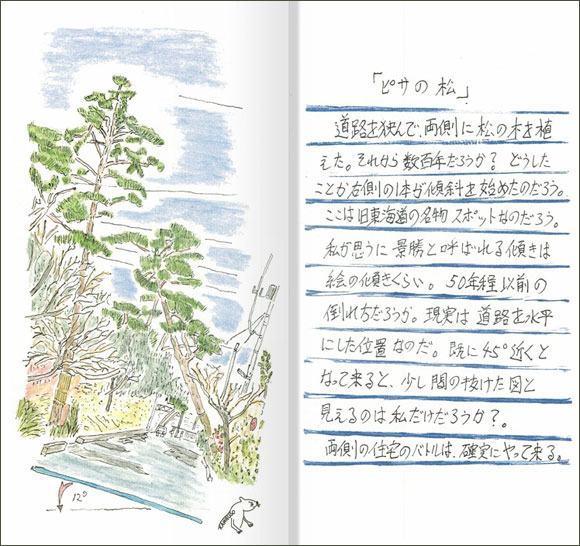 12°
「ピサの松」
道路を狭んで、両側に松の木を植
えた。それから数百年だろうか？どうした
ことか右側の1本が傾斜を始めたのだろう。
ここは旧東海道の名物スポットなのだろう。
私が思うに景勝と呼ばれる傾きは
絵の傾きくらい。50年程以前の
倒れ方だろうか。現実は道路を水平
にした位置なのだ。既に45°近くと
なって来ると、少し間の抜けた図と
見えるのは私だけだろうか？。
両側の住宅のバトルは、確実にやって来る。